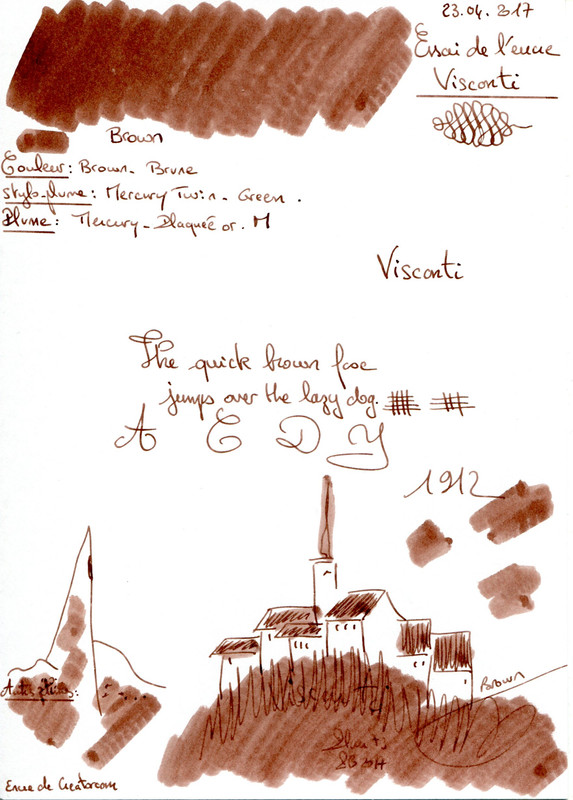 23.04.2017
Essai de l'encre
Visconti
Brown
Couleur: Brown - Brune
Stylo-plume: Mercury Twin - Green.
Plume: Mercury - Plaquée or. M
Visconti
The quick brown foxe
jumps over the lazy dog.
A E D Y
1912
Visconti
Brown
Autres
Encre de